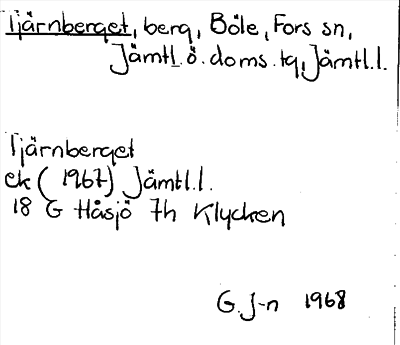 Tjärnberget, berg, Böle, Fors sn,
Jämtl. ö. doms. tg, Jämtl. l.
Tjärnberget
ek (1967) Jämtl. l.
18 G Håsjö 7h Klycken
G. J-n 1968